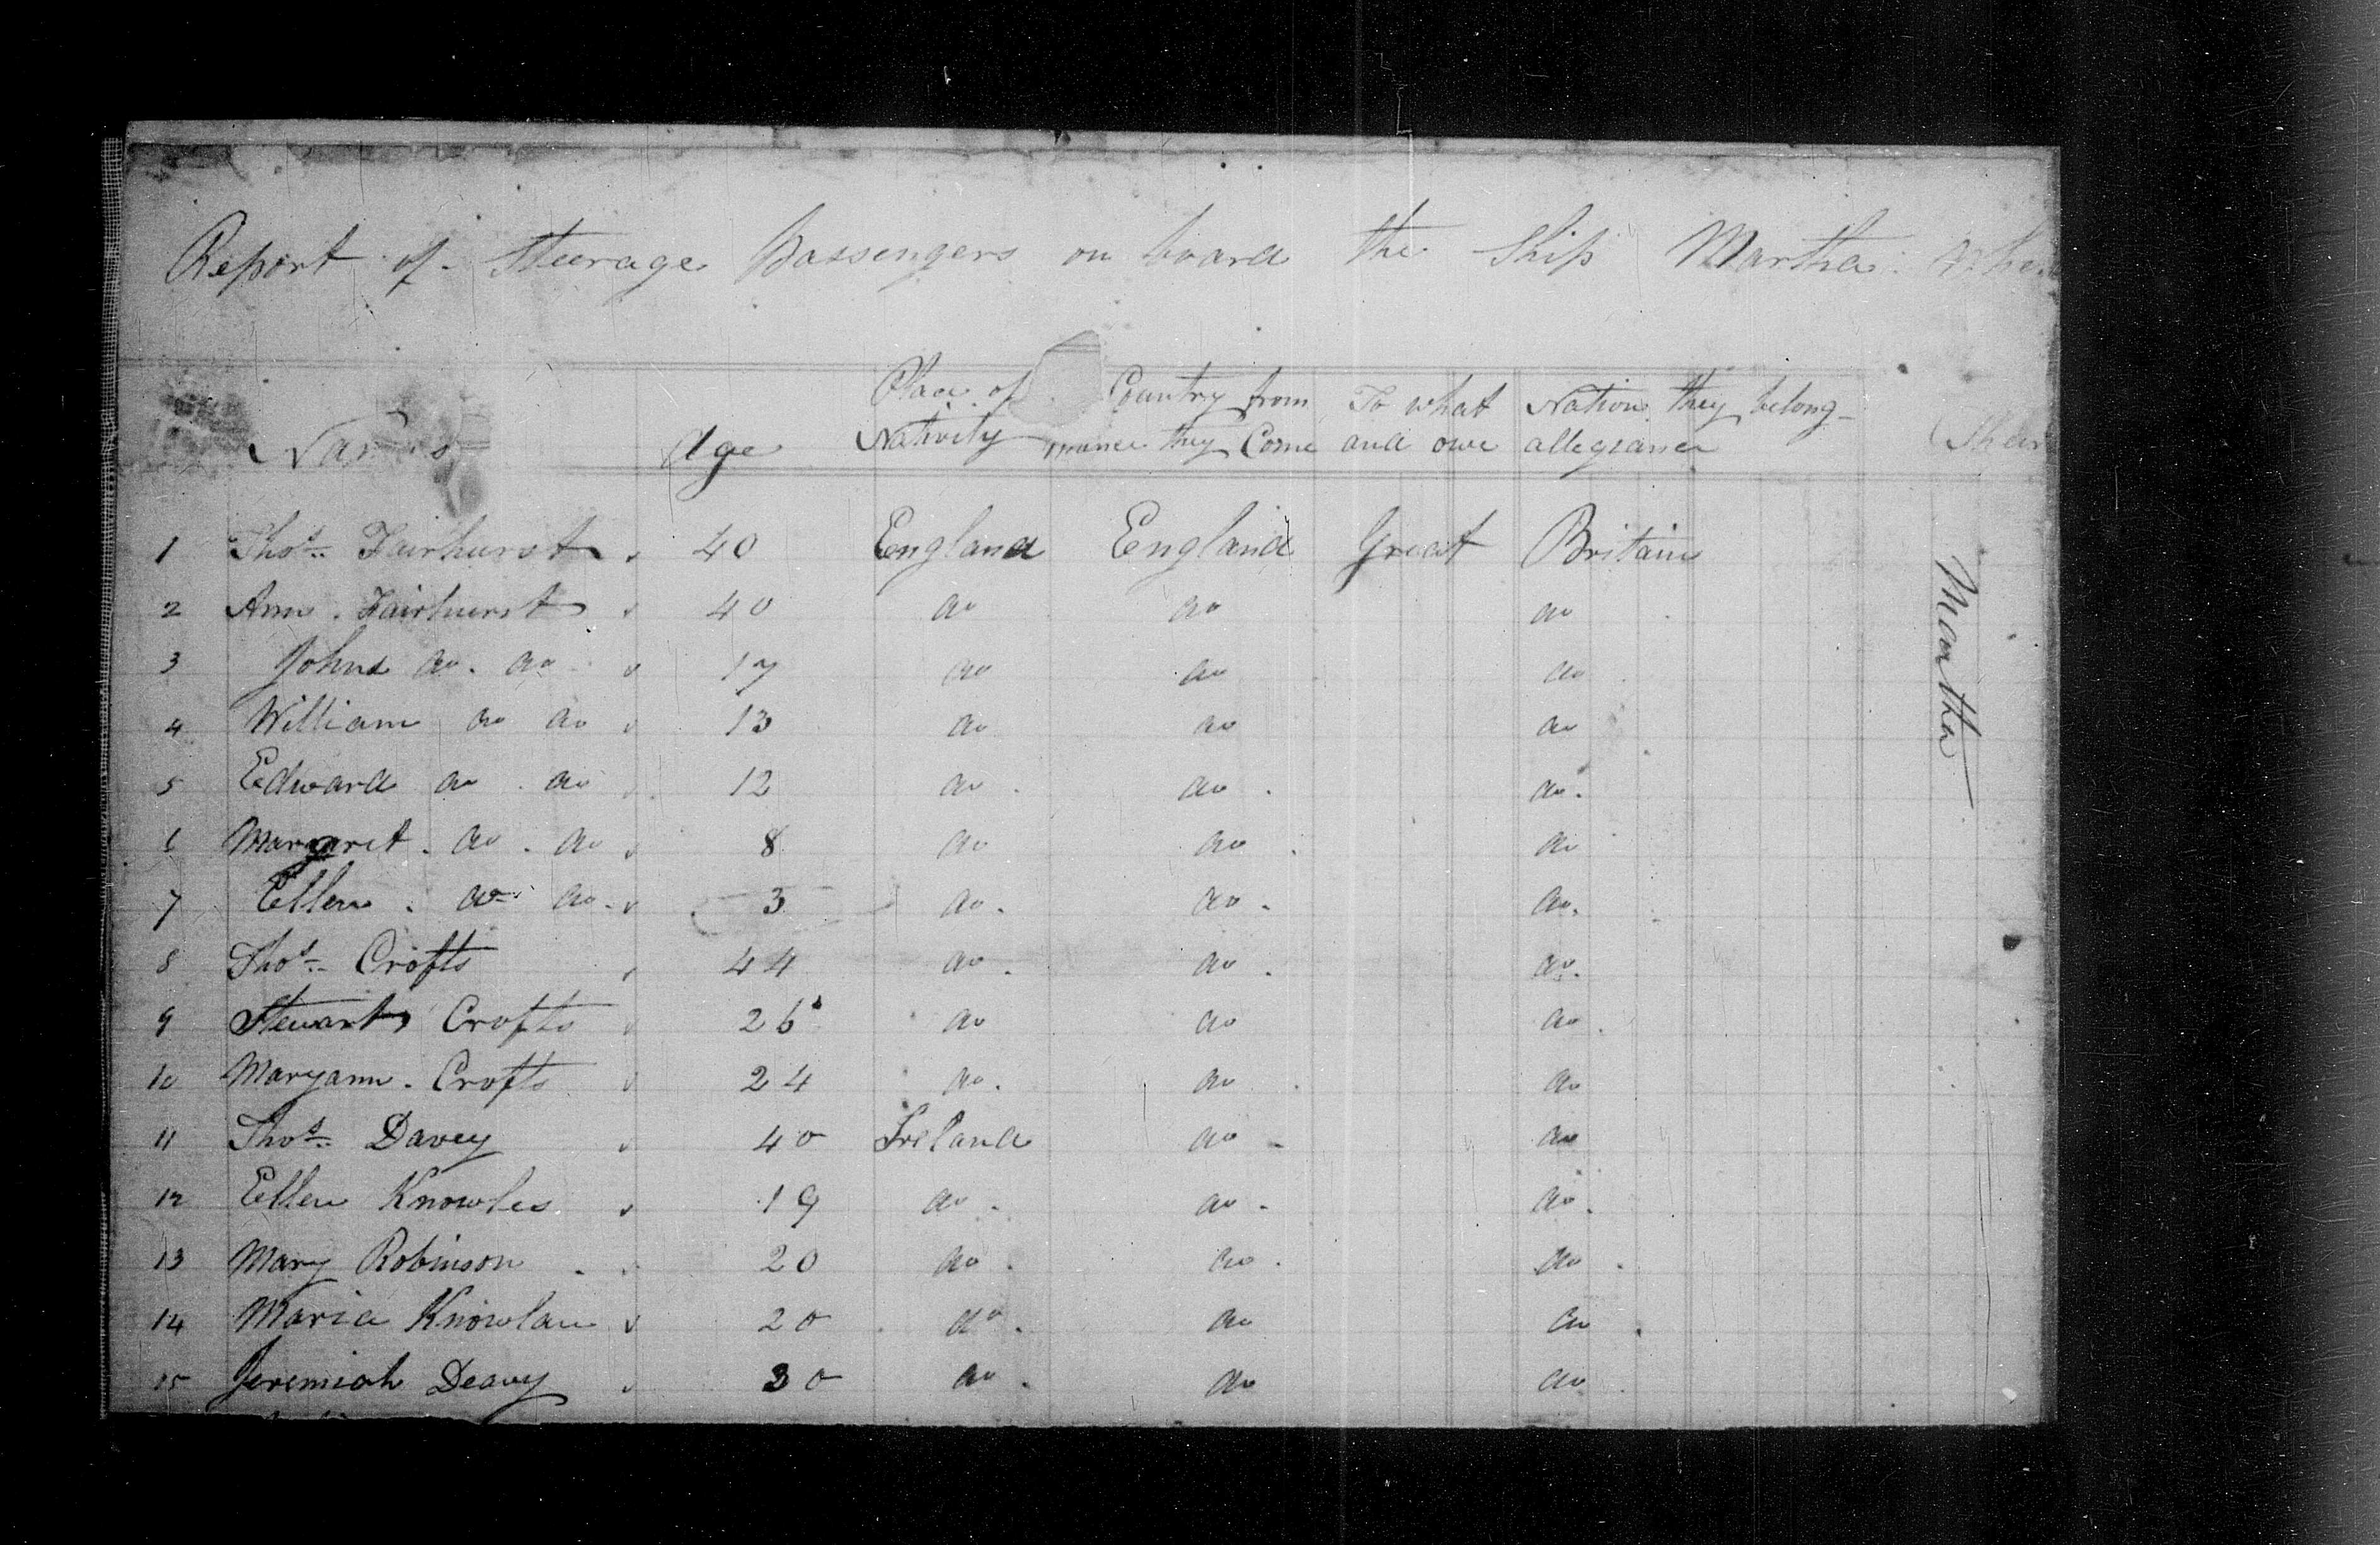 Report of Steerage Passengers on board the Ship Martha
Names Age Place of Nativity Country from whence they Come To what Nation they belong and owe allegiance
1 Thos. Fairhurst 40 England England Great Britain
2 Ann Fairhurst 40 do do do
3 John do. do 17 do do do
4 William do do 13 do do do
5 Edward do. do 12 do. do. do.
6 Margaret. do. do 8 do do. do
7 Ellen. do do. 3 do. do. do.
8 Thos. Crofts 44 do. do. do.
9 Stewart Crofts 26 do do do.
10 Maryann. Crofts 24 do. do do
11 Thos. Davey 40 Ireland do do
12 Ellen Knowles 19 do. do. do.
13 Mary Robinson 20 do. do. do.
14 Maria Knowlan 20 do. do do.
15 Jeremiah Deavy 30 do. do do
Martha